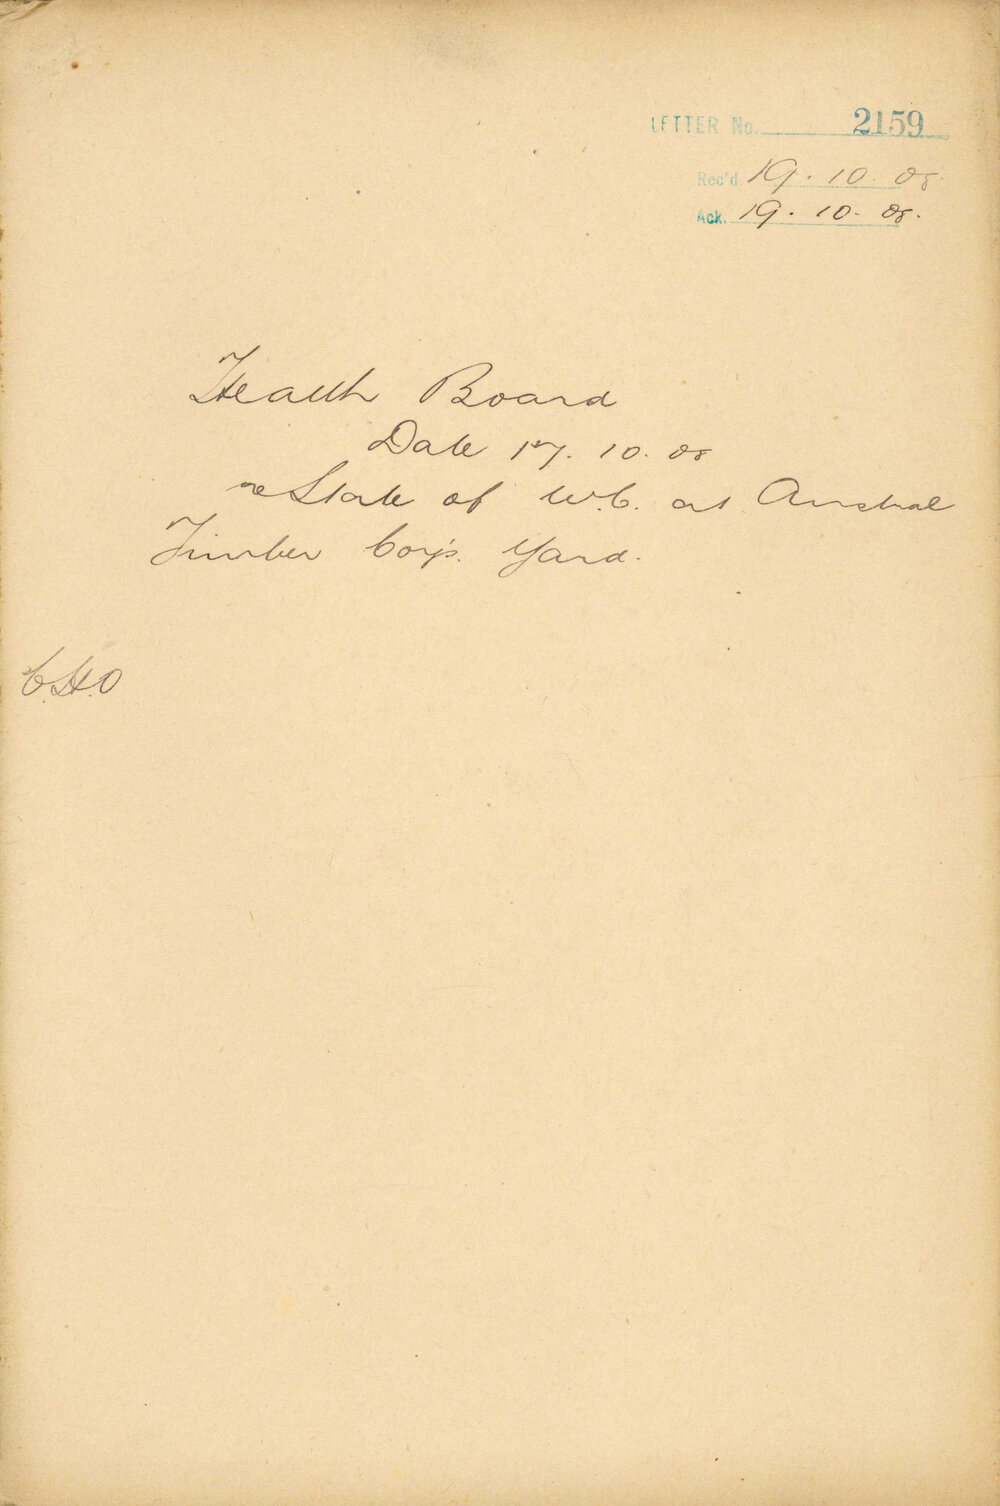 LETTER No. 2159
Rec'd 19.10.08.
Ack. 19.10.08.
Health Board
Date 17.10.08
re State of W.C. at Austral
Timber Coy's. Yard.
C.H.O